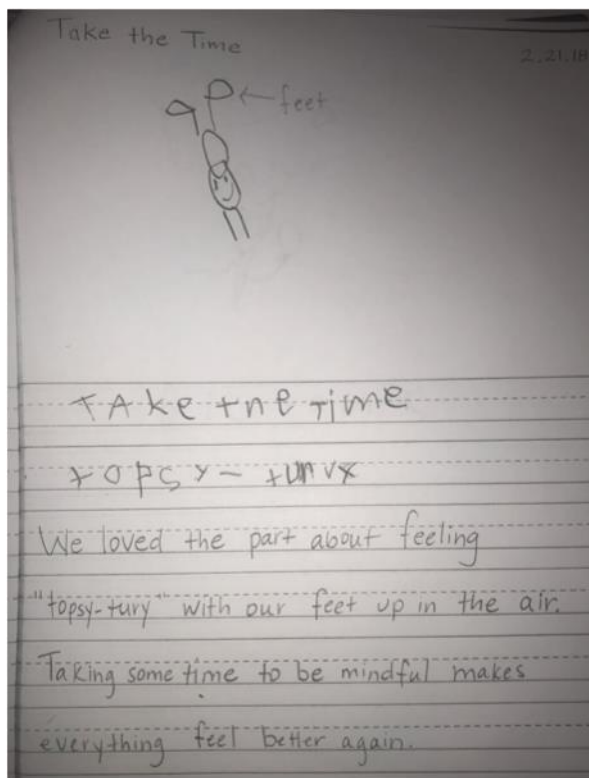 Take the Time
2.21.18
← feet
TAke tne Time
topsy- tunvx
We loved the part about feeling
"topsy-tury" with our feet up in the air.
Taking some time to be mindful makes
everything feel better again.